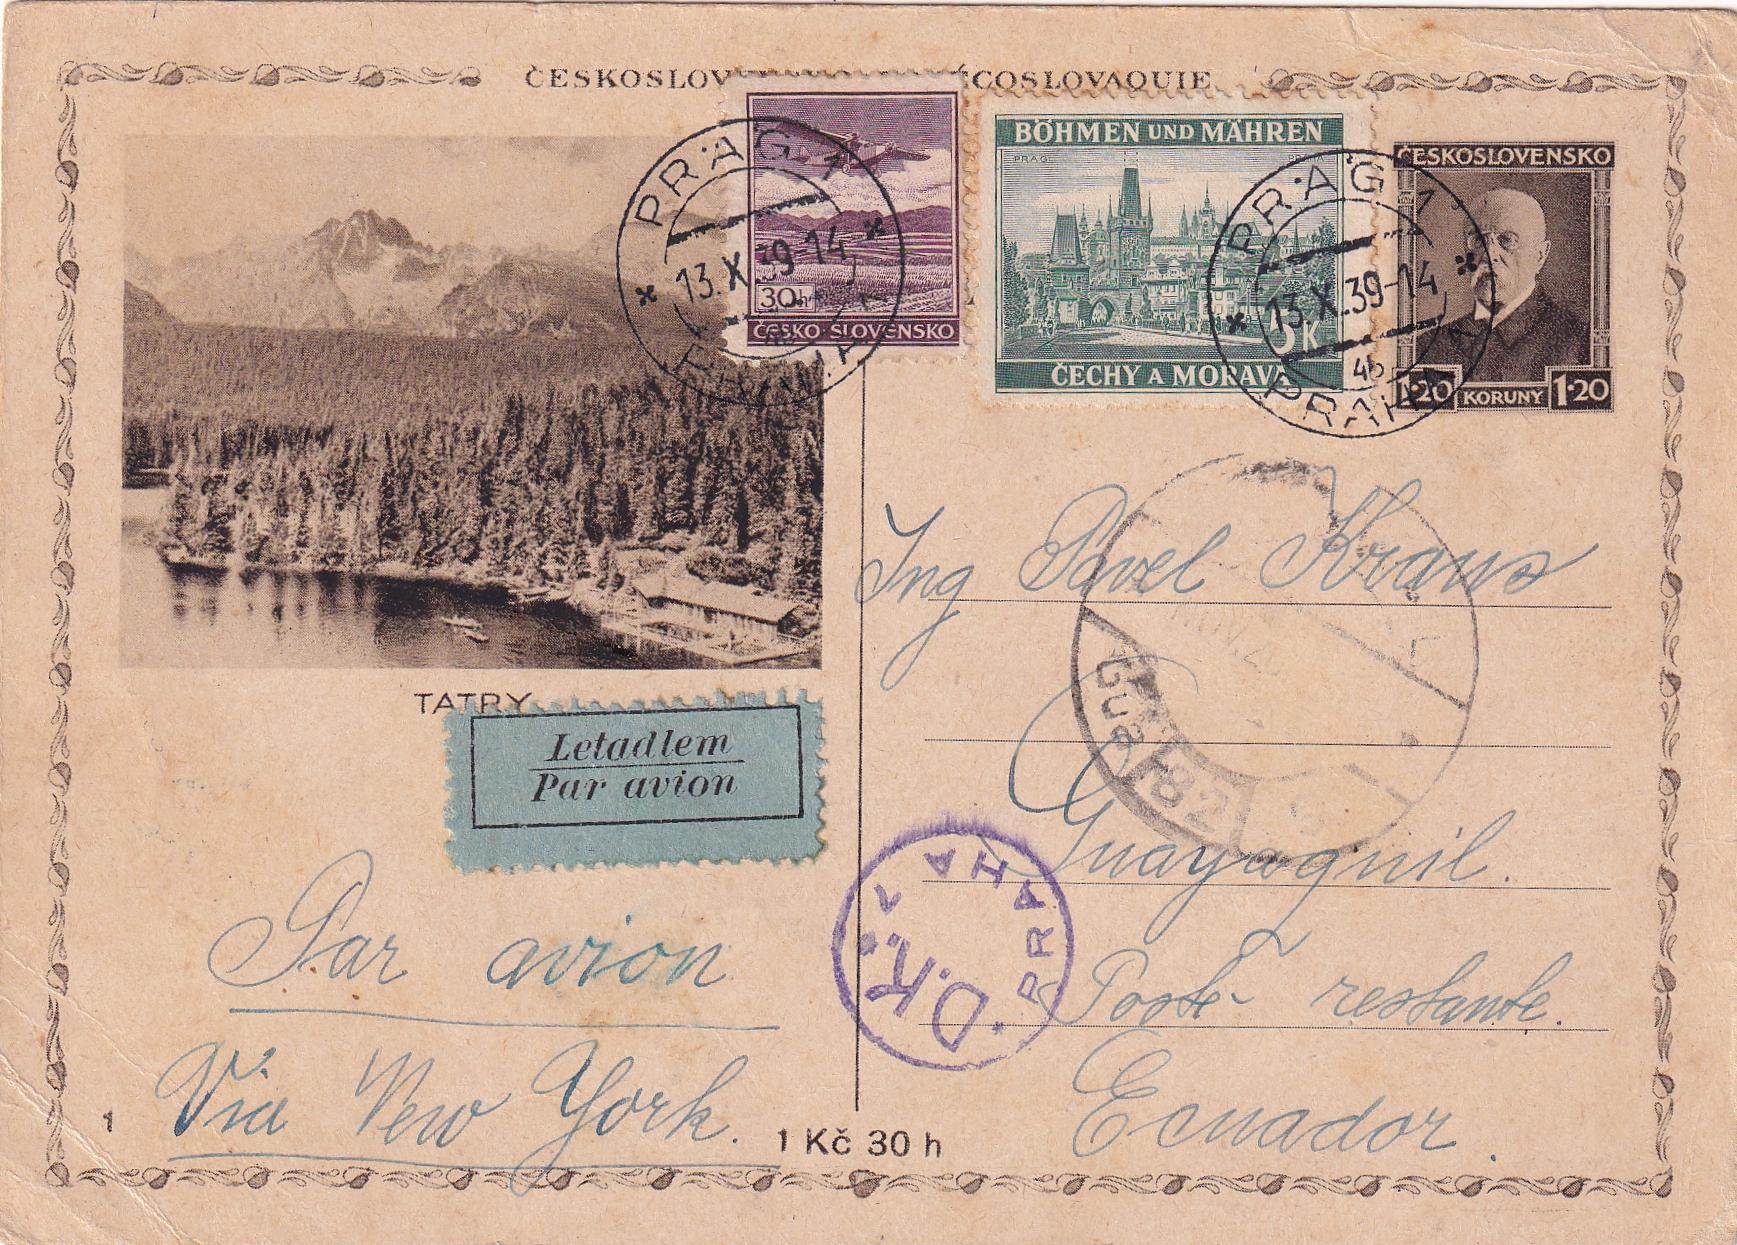 ČESKOSLOV COSLOVAQUIE
BÖHMEN UND MÄHREN
PRAG
30h
ČESKO SLOVENSKO
5K
ČECHY A MORAVA
ČESKOSLOVENSKO
1·20 KORUNY 1·20
PRAG 1
13.X.39-14
PRAHA
PRAG 1
13.X.39-14
46
PRAHA
TATRY
Letadlem
Par avion
Ing Pavel Kraus
Guayaquil.
Poste restante.
Ecuador.
Par avion
Via New York.
PRAHA 7
D.K.
82
1
1 Kč 30 h